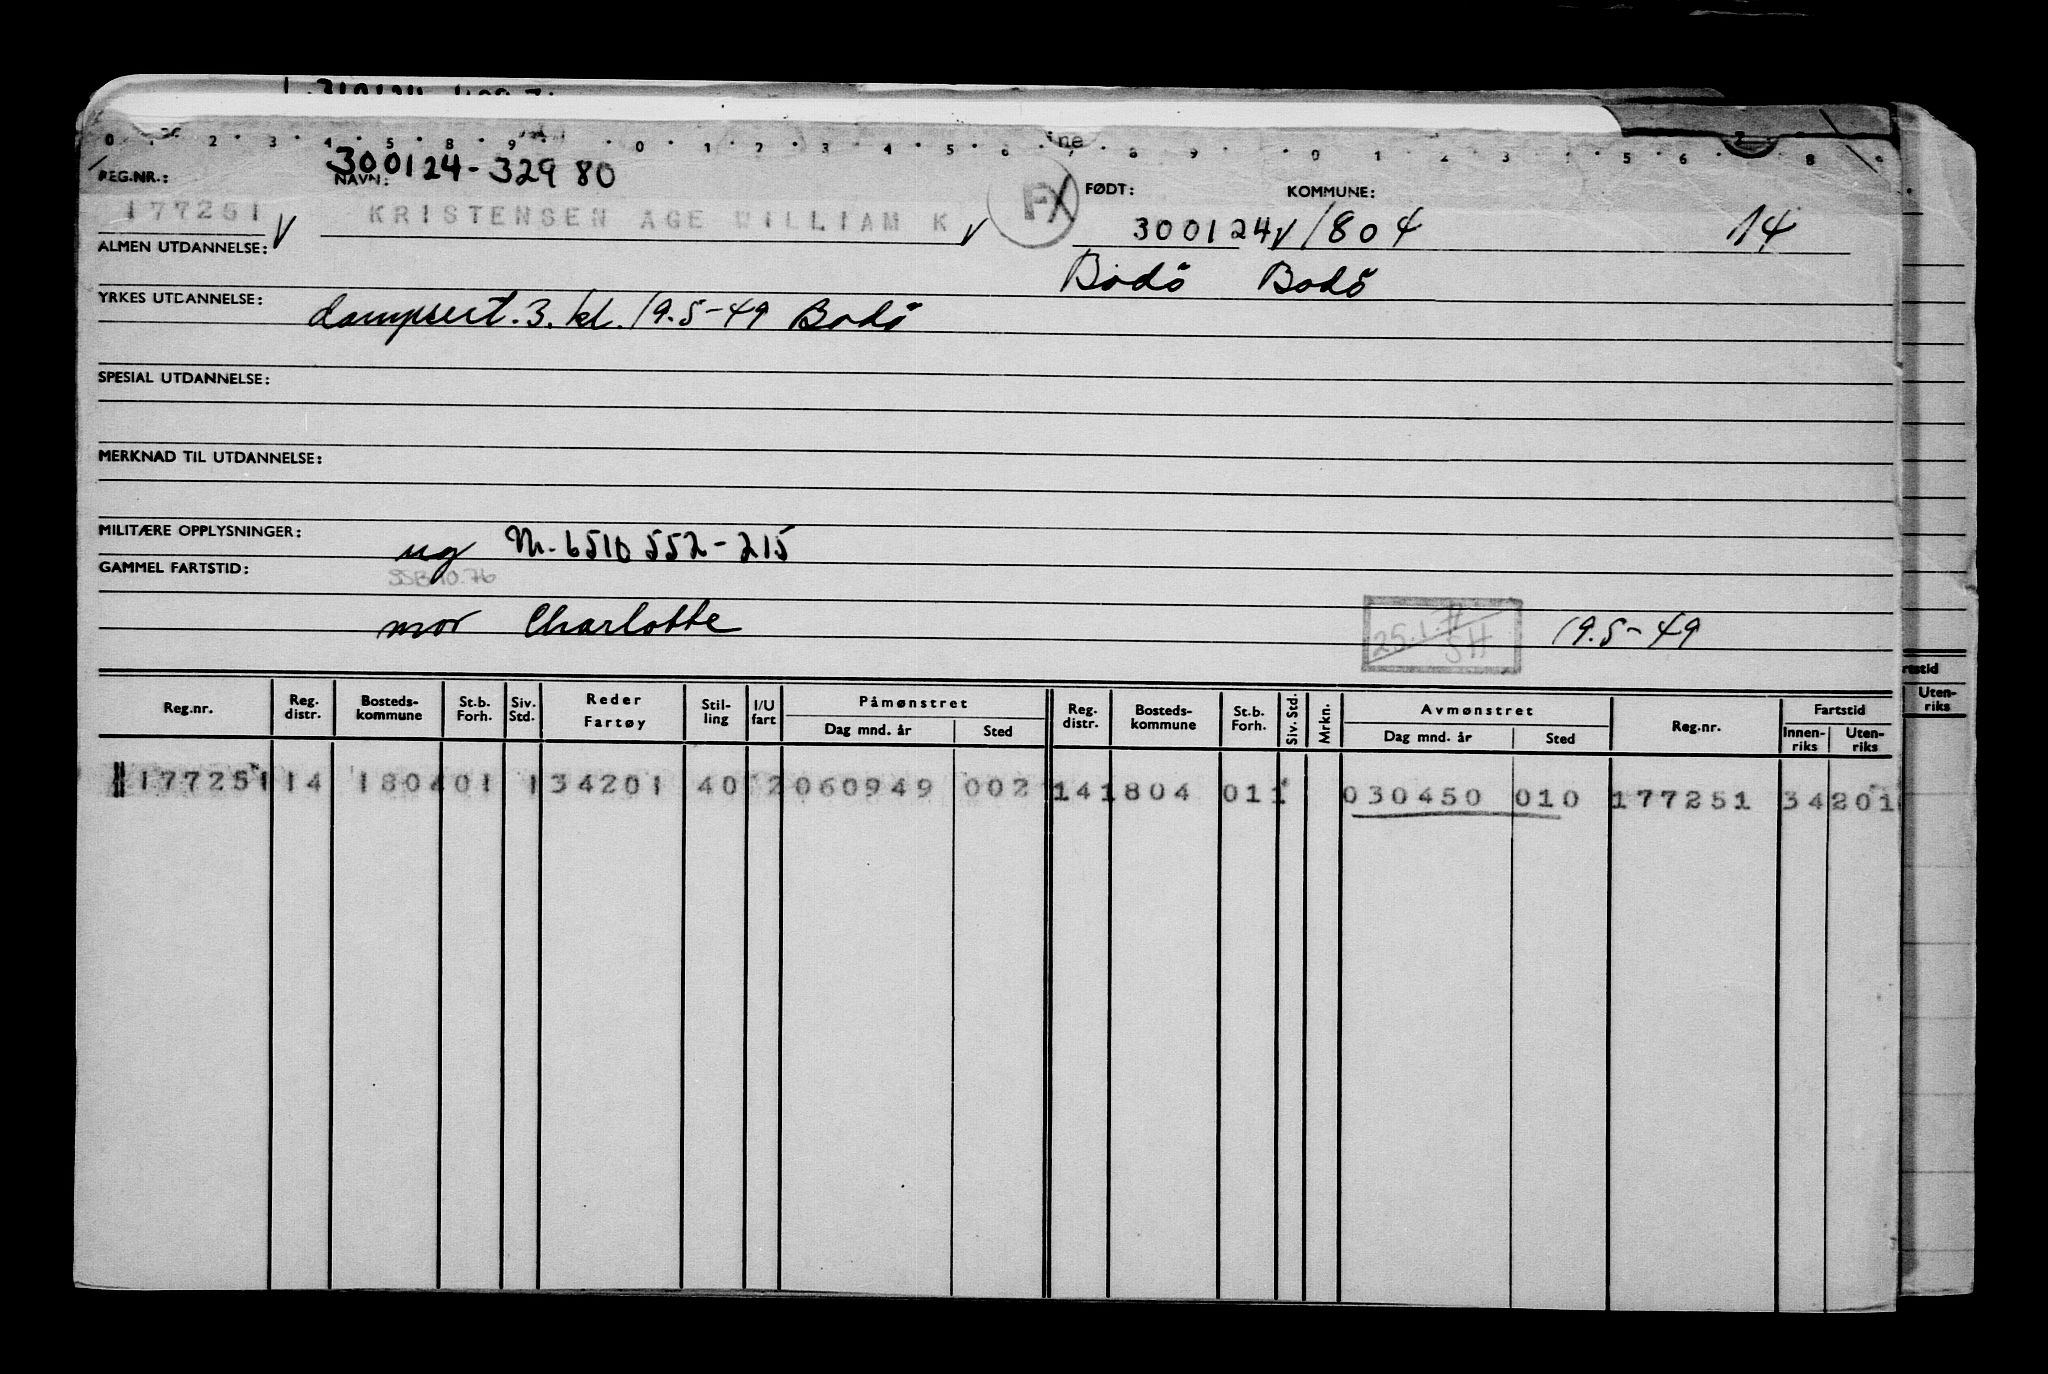 300124-32980
REG.NR.: NAVN: FØDT: KOMMUNE:
177251 KRISTENSEN AGE WILLIAM K 300124 1804 14
ALMEN UTDANNELSE: Bodö Bodö
YRKES UTDANNELSE: dampsert. 3. kl. 19.5-49 Bodö
SPESIAL UTDANNELSE:
MERKNAD TIL UTDANNELSE:
MILITÆRE OPPLYSNINGER: ug M. 6510552-215
GAMMEL FARTSTID: SSB 10.76
mor Charlotte 19.5-49
Reg.nr. Reg. distr. Bosteds-kommune St.b. Forh. Siv. Std. Reder Fartøy Stil-ling I/U fart Påmønstret Dag mnd. år Sted Reg. distr. Bosteds-kommune St.b. Forh. Siv. Std. Mrkn. Avmønstret Dag mnd. år Sted Reg.nr. Fartstid Innen-riks Uten-riks
177251 14 180401 134201 40 2 060949 002 141804 011 030450 010 177251 34201
Uten-riks